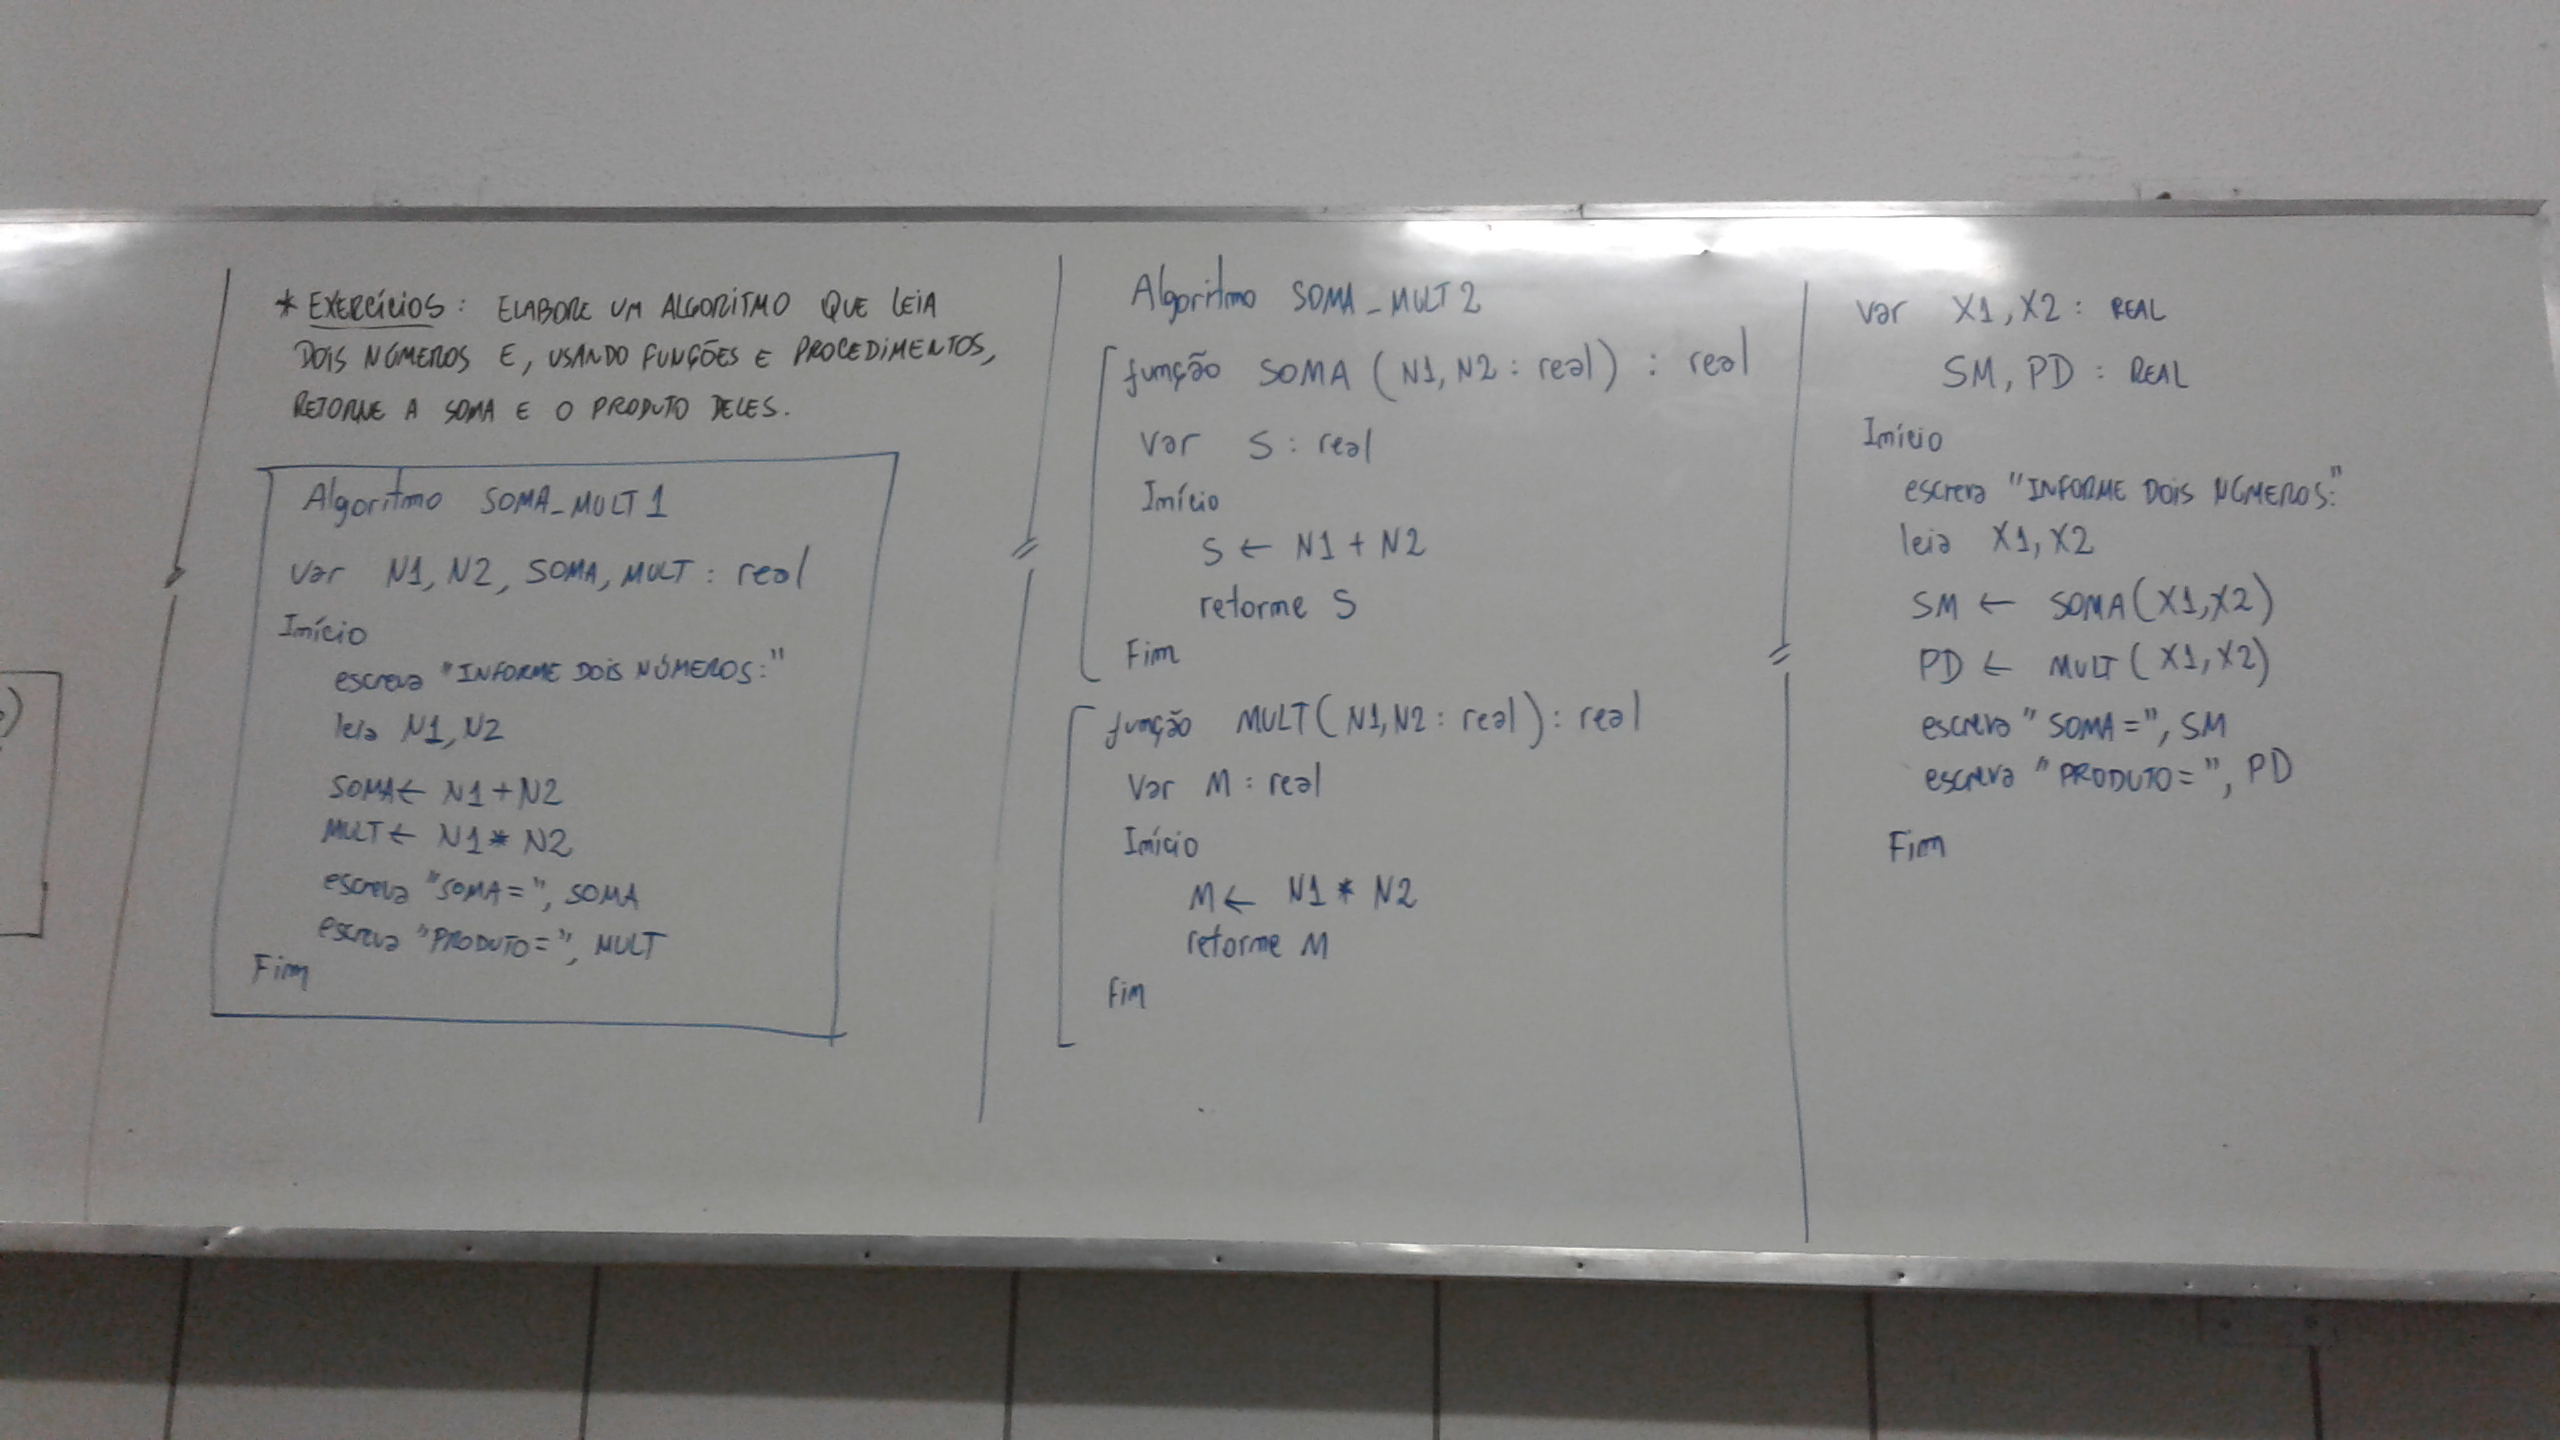 * EXERCÍCIOS: ELABORE UM ALGORITMO QUE LEIA
DOIS NÚMEROS E, USANDO FUNÇÕES E PROCEDIMENTOS,
RETORNE A SOMA E O PRODUTO DELES.
Algoritmo SOMA_MULT1
Var N1, N2, SOMA, MULT : real
Início
escreva "INFORME DOIS NÚMEROS:"
leia N1, N2
SOMA ← N1 + N2
MULT ← N1 * N2
escreva "SOMA=", SOMA
escreva "PRODUTO=", MULT
Fim
Algoritmo SOMA_MULT2
função SOMA (N1, N2 : real) : real
Var S : real
Início
S ← N1 + N2
retorne S
Fim
função MULT (N1, N2 : real) : real
Var M : real
Início
M ← N1 * N2
retorne M
Fim
Var X1, X2 : REAL
SM, PD : REAL
Início
escreva "INFORME DOIS NÚMEROS:"
leia X1, X2
SM ← SOMA(X1, X2)
PD ← MULT(X1, X2)
escreva "SOMA=", SM
escreva "PRODUTO=", PD
Fim